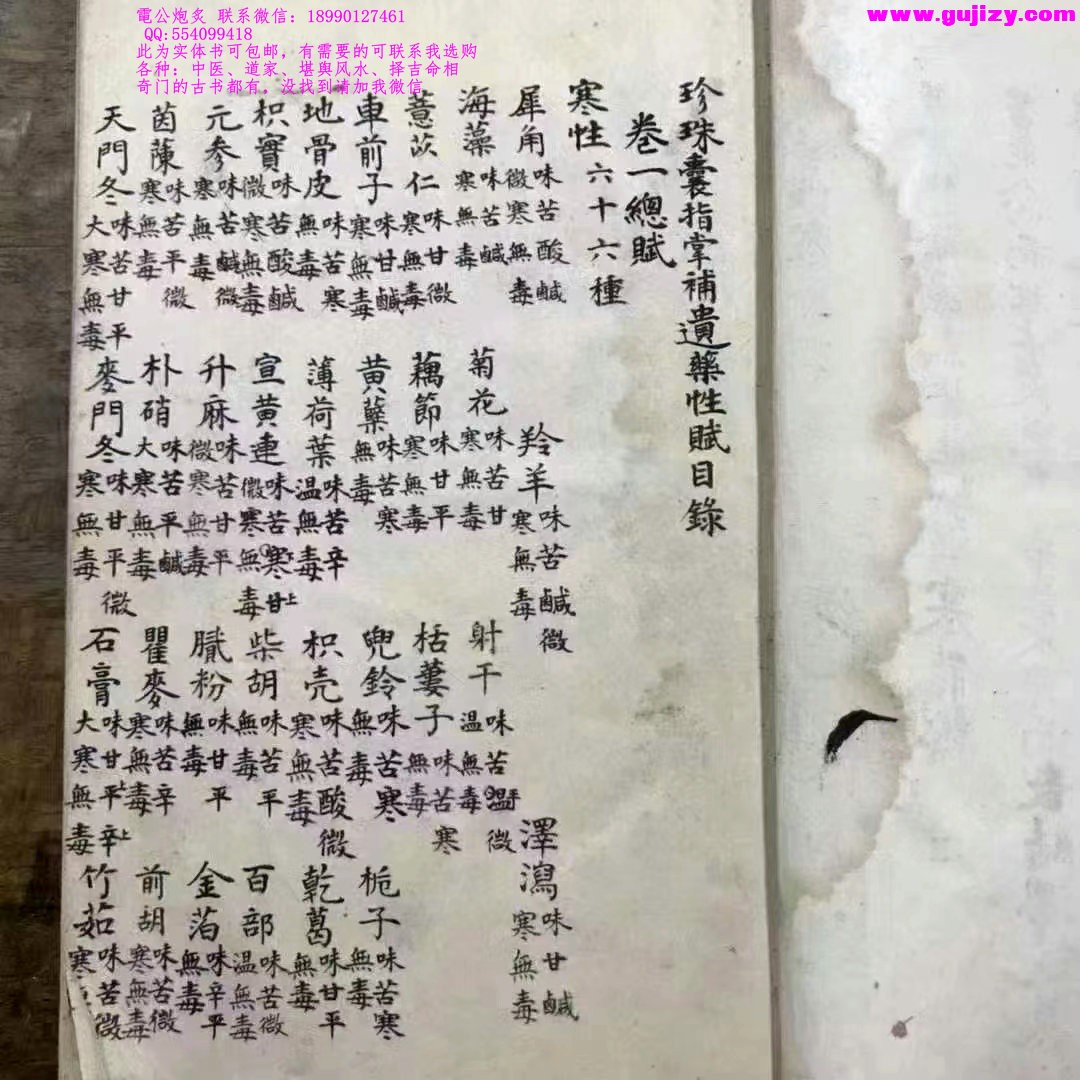 電公炮炙 联系微信：18990127461
QQ:554099418
此为实体书可包邮，有需要的可联系我选购
各种：中医、道家、堪舆风水、择吉命相
奇门的古书都有。没找到请加我微信
www.gujizy.com
珍珠囊指掌補遺藥性賦目錄
卷一總賦
寒性六十六種
犀角味苦酸鹹微寒無毒 羚羊味苦鹹微寒無毒 澤瀉味甘鹹寒無毒
海藻味苦鹹寒無毒 菊花味苦甘寒無毒 射干味苦平微温無毒
薏苡仁味甘微寒無毒 藕節味甘平寒無毒 栝蔞子味苦寒無毒
車前子味甘鹹寒無毒 黃蘗味苦寒無毒 兜鈴味苦寒無毒 梔子味苦寒無毒
地骨皮味苦寒無毒 薄荷葉味苦辛温無毒 枳壳味苦酸微寒無毒 乾葛味甘平無毒
枳實味苦酸鹹微寒無毒 宣黃連味苦寒甘微寒無毒 柴胡味苦平無毒 百部味苦微温無毒
元参味苦鹹微寒無毒 升麻味苦甘平微寒無毒 膩粉味甘平無毒 金箔味辛平無毒
茵蔯味苦平微寒無毒 朴硝味苦平鹹大寒無毒 瞿麥味苦辛寒無毒 前胡味苦微寒無毒
天門冬味苦甘平大寒無毒 麥門冬味甘平微寒無毒 石膏味甘平辛大寒無毒 竹茹味苦微寒